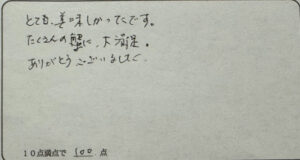 とても、美味しかったです。
たくさんの蟹に、大満足。
ありがとうございました
10点満点で 100 点